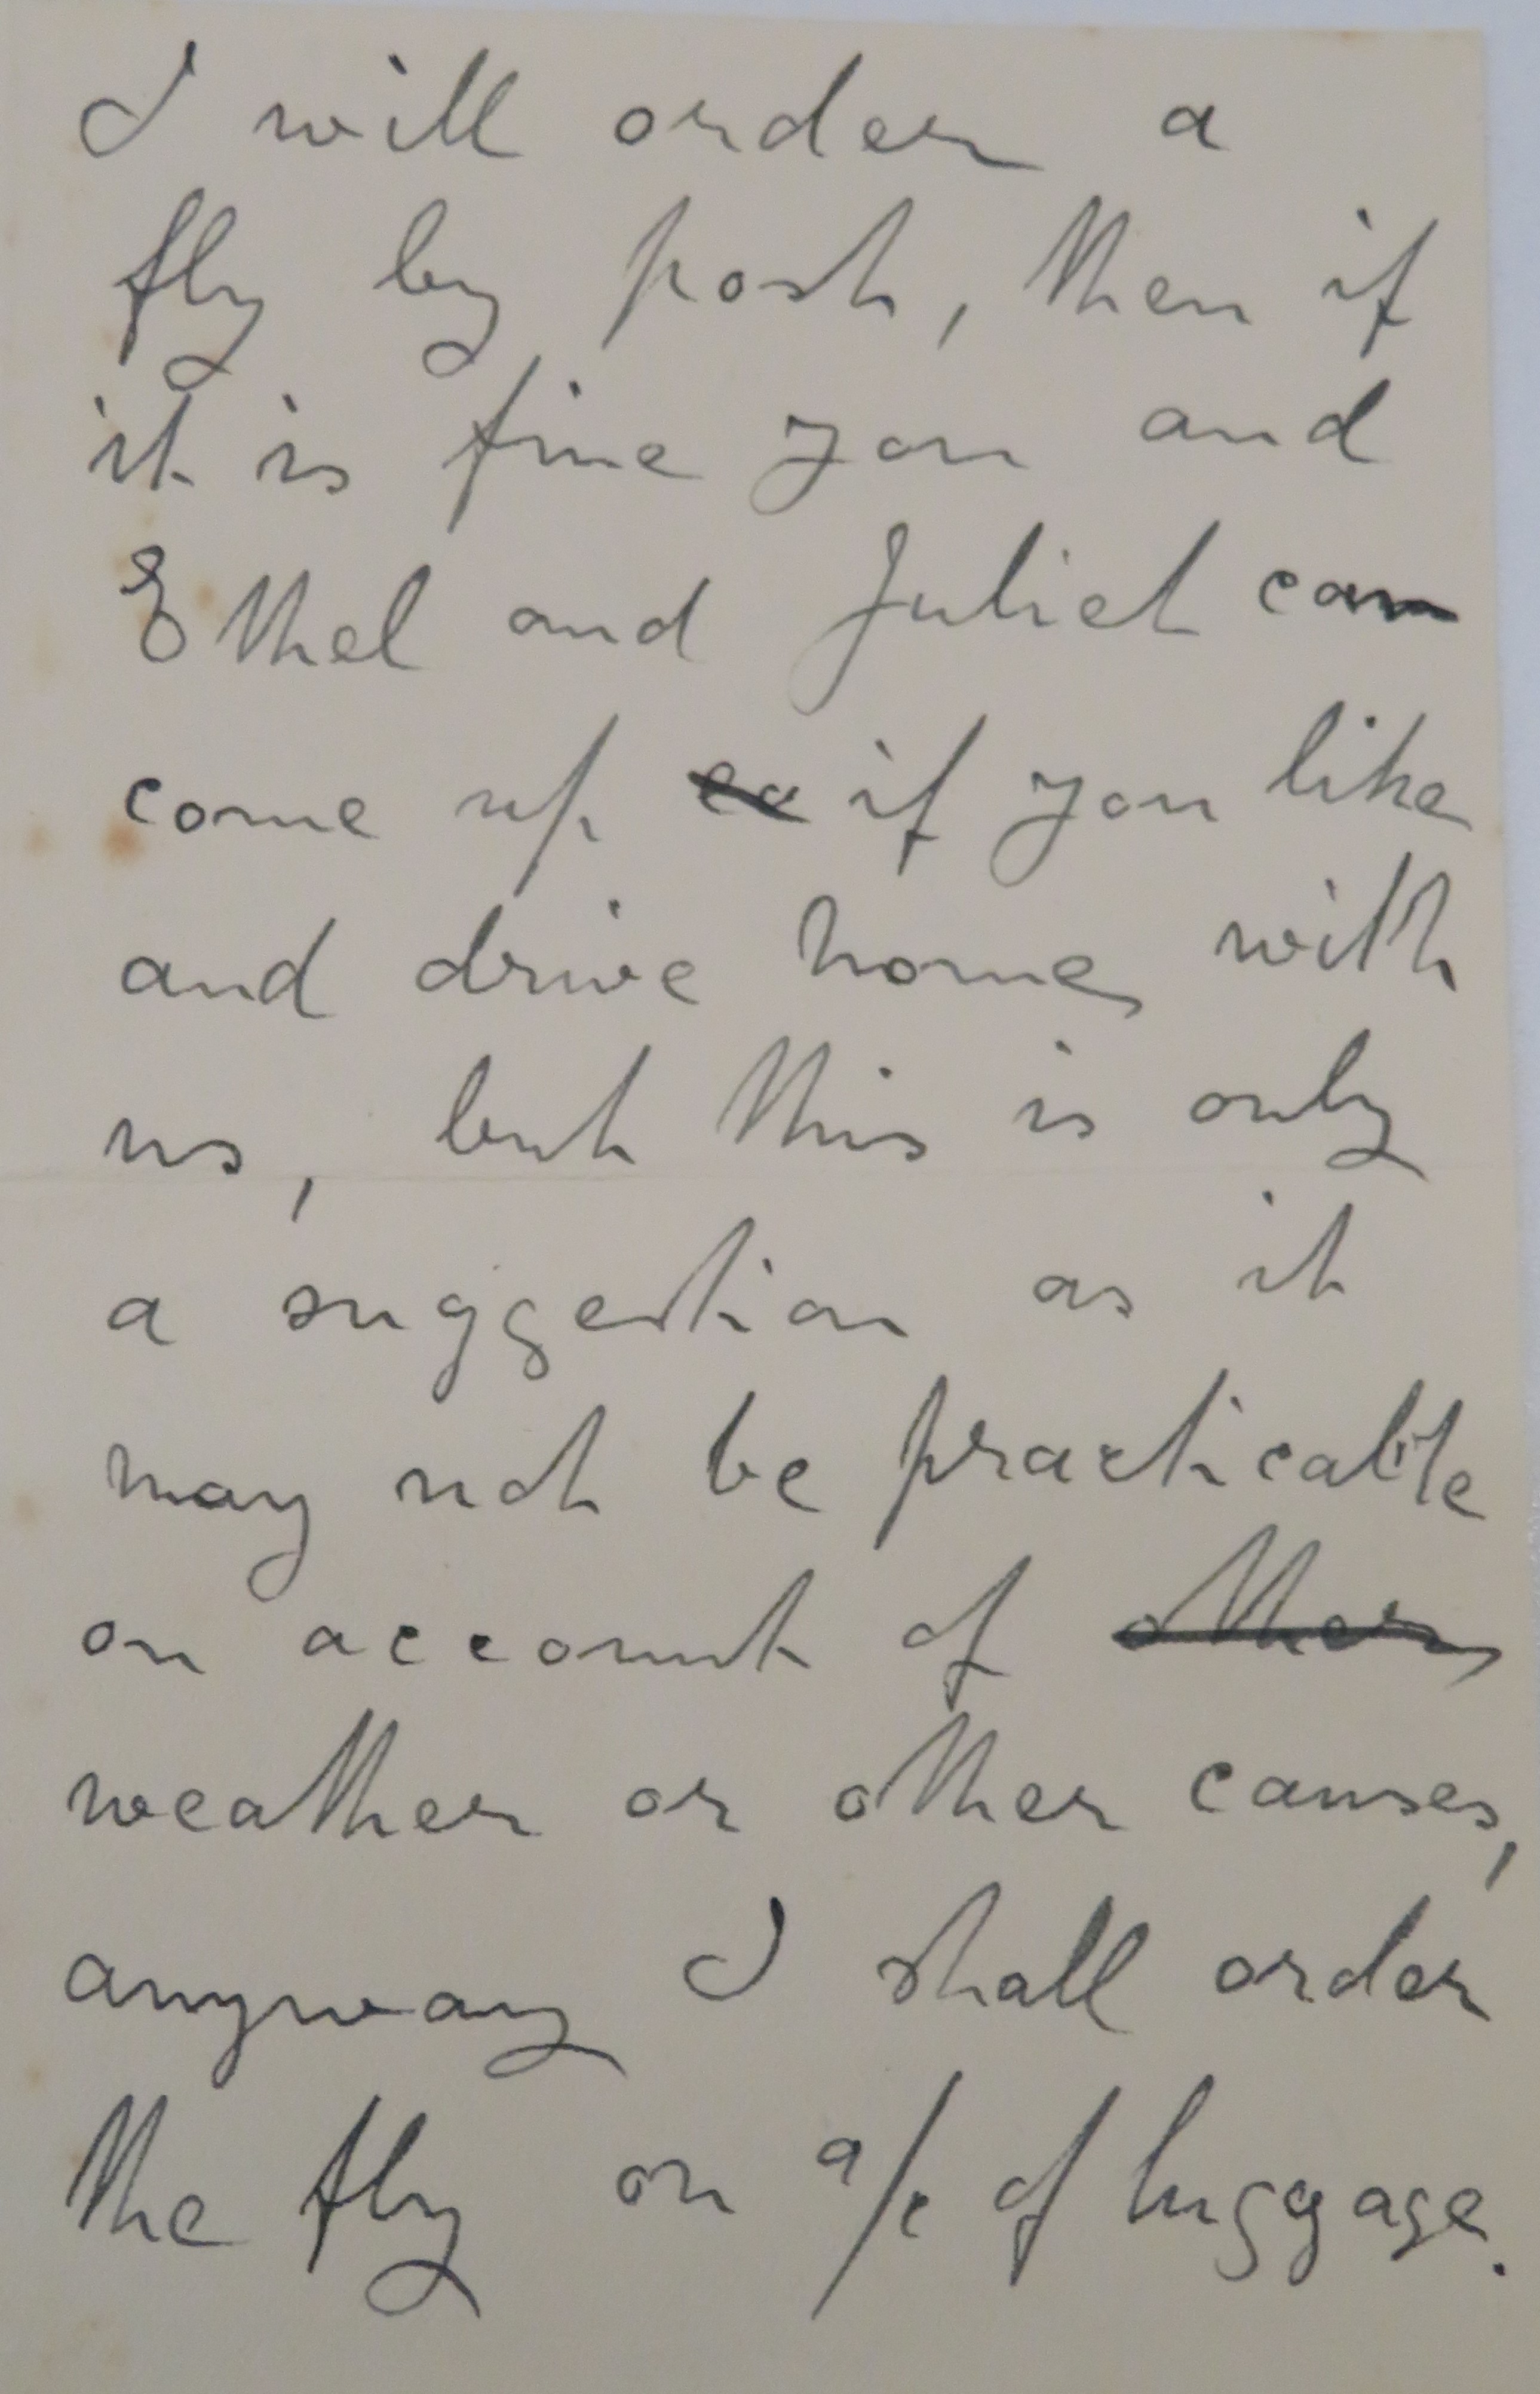 I will order a
fly by post, then if
it is fine you and
Ethel and Juliet can
come up co if you like
and drive home with
us, but this is only
a suggestion as it
may not be practicable
on account of other
weather or other causes,
anyway I shall order
the fly on a/c of luggage.